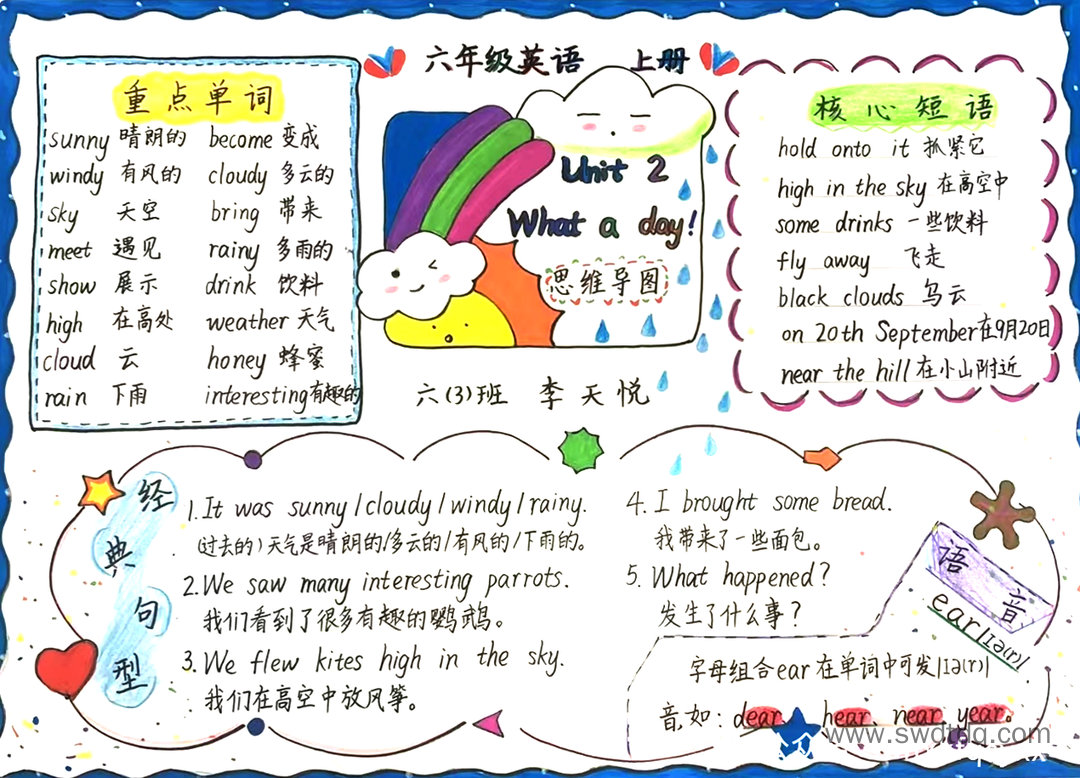 六年级英语 上册
Unit 2
What a day!
思维导图
六(3)班 李天悦
重点单词
sunny 晴朗的 become 变成
windy 有风的 cloudy 多云的
sky 天空 bring 带来
meet 遇见 rainy 多雨的
show 展示 drink 饮料
high 在高处 weather 天气
cloud 云 honey 蜂蜜
rain 下雨 interesting 有趣的
核心短语
hold onto it 抓紧它
high in the sky 在高空中
some drinks 一些饮料
fly away 飞走
black clouds 乌云
on 20th September 在9月20日
near the hill 在小山附近
经典句型
1. It was sunny/cloudy/windy/rainy.
(过去的)天气是晴朗的/多云的/有风的/下雨的。
2. We saw many interesting parrots.
我们看到了很多有趣的鹦鹉。
3. We flew kites high in the sky.
我们在高空中放风筝。
4. I brought some bread.
我带来了一些面包。
5. What happened?
发生了什么事?
语音
ear/ɪə(r)/
字母组合ear在单词中可发/ɪə(r)/
音,如: dear、hear、near、year。
www.swdtdq.com